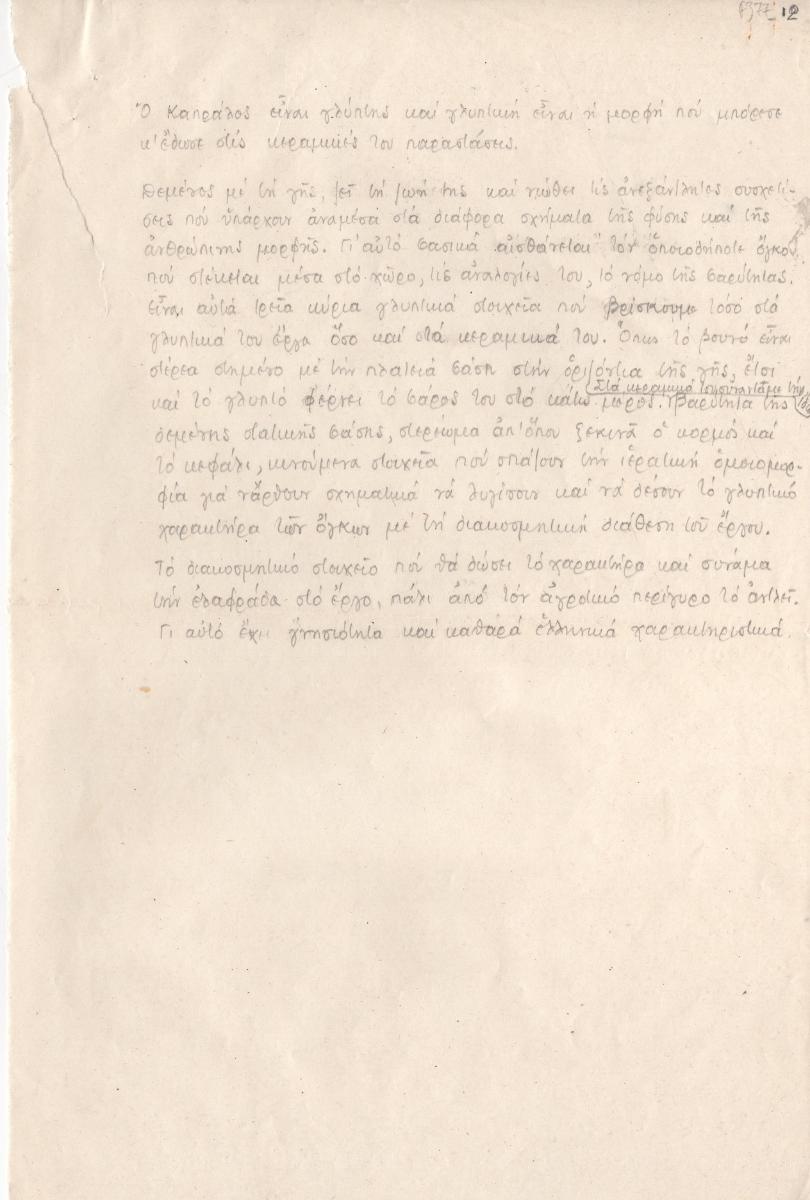 6377 12
Ὁ Καπράλος εἶναι γλύπτης καί γλυπτική εἶναι ἡ μορφή πού μπόρεσε
κ' ἔδωσε στίς κεραμικές του παραστάσεις.
Δεμένος μέ τή γῆς, ζεῖ τή ζωή της καί νιώθει τίς ἀνεξάντλητες συσχετί-
σεις πού ὑπάρχουν ἀναμέσα στά διάφορα σχήματα τῆς φύσης καί τῆς
ἀνθρώπινης μορφῆς. Γι' αὐτό βασικά αἰσθάνεται τόν ὁποιοδήποτε ὄγκον
πού στέκεται μέσα στό χῶρο, τίς ἀναλογίες του, τό νόμο τῆς βαρύτητας.
Εἶναι αὐτά τρεῖα κύρια γλυπτικά στοιχεῖα πού βρίσκουμε τόσο στά
γλυπτικά του ἔργα ὅσο καί στά κεραμικά του. Ὅπως τό βουνό εἶναι
στέρεα στημένο μέ τήν πλατειά βάση στήν ὁριζόντια τῆς γῆς, ἔτσι
Στά κεραμικά του συναντᾶμε τήν
καί τό γλυπτό φέρνει τό βάρος του στό κάτω μέρος. βαρύτητα τῆς
δεμένης στατικῆς βάσης, στερέωμα ἀπ' ὅπου ξεκινᾶ ὁ κορμός καί
τό κεφάλι, κινούμενα στοιχεῖα πού σπάζουν τήν ἱερατική ὁμοιομορ-
φία γιά νἄρθουν σχηματικά νά λυγίσουν καί νά δέσουν τό γλυπτικό
χαρακτήρα τῶν ὄγκων μέ τή διακοσμητική διάθεση τοῦ ἔργου.
Τό διακοσμητικό στοιχεῖο πού θά δώσει τό χαρακτήρα καί συνάμα
τήν ἐλαφράδα στό ἔργο, πάλι ἀπό τόν ἀγροτικό περίγυρο τό ἀντλεῖ.
Γι αὐτό ἔχει γνησιότητα καί καθαρά ἑλληνικά χαρακτηριστικά.